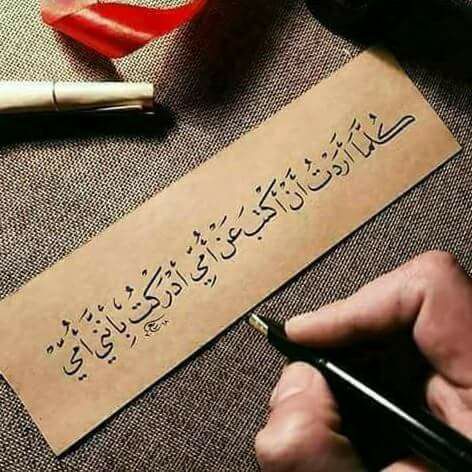 كُلَّمَا أَرَدْتُ أَنْ أَكْتُبَ عَنْ أُمِّي أَدْرَكْتُ بِأَنَّنِي أُمِّيْ